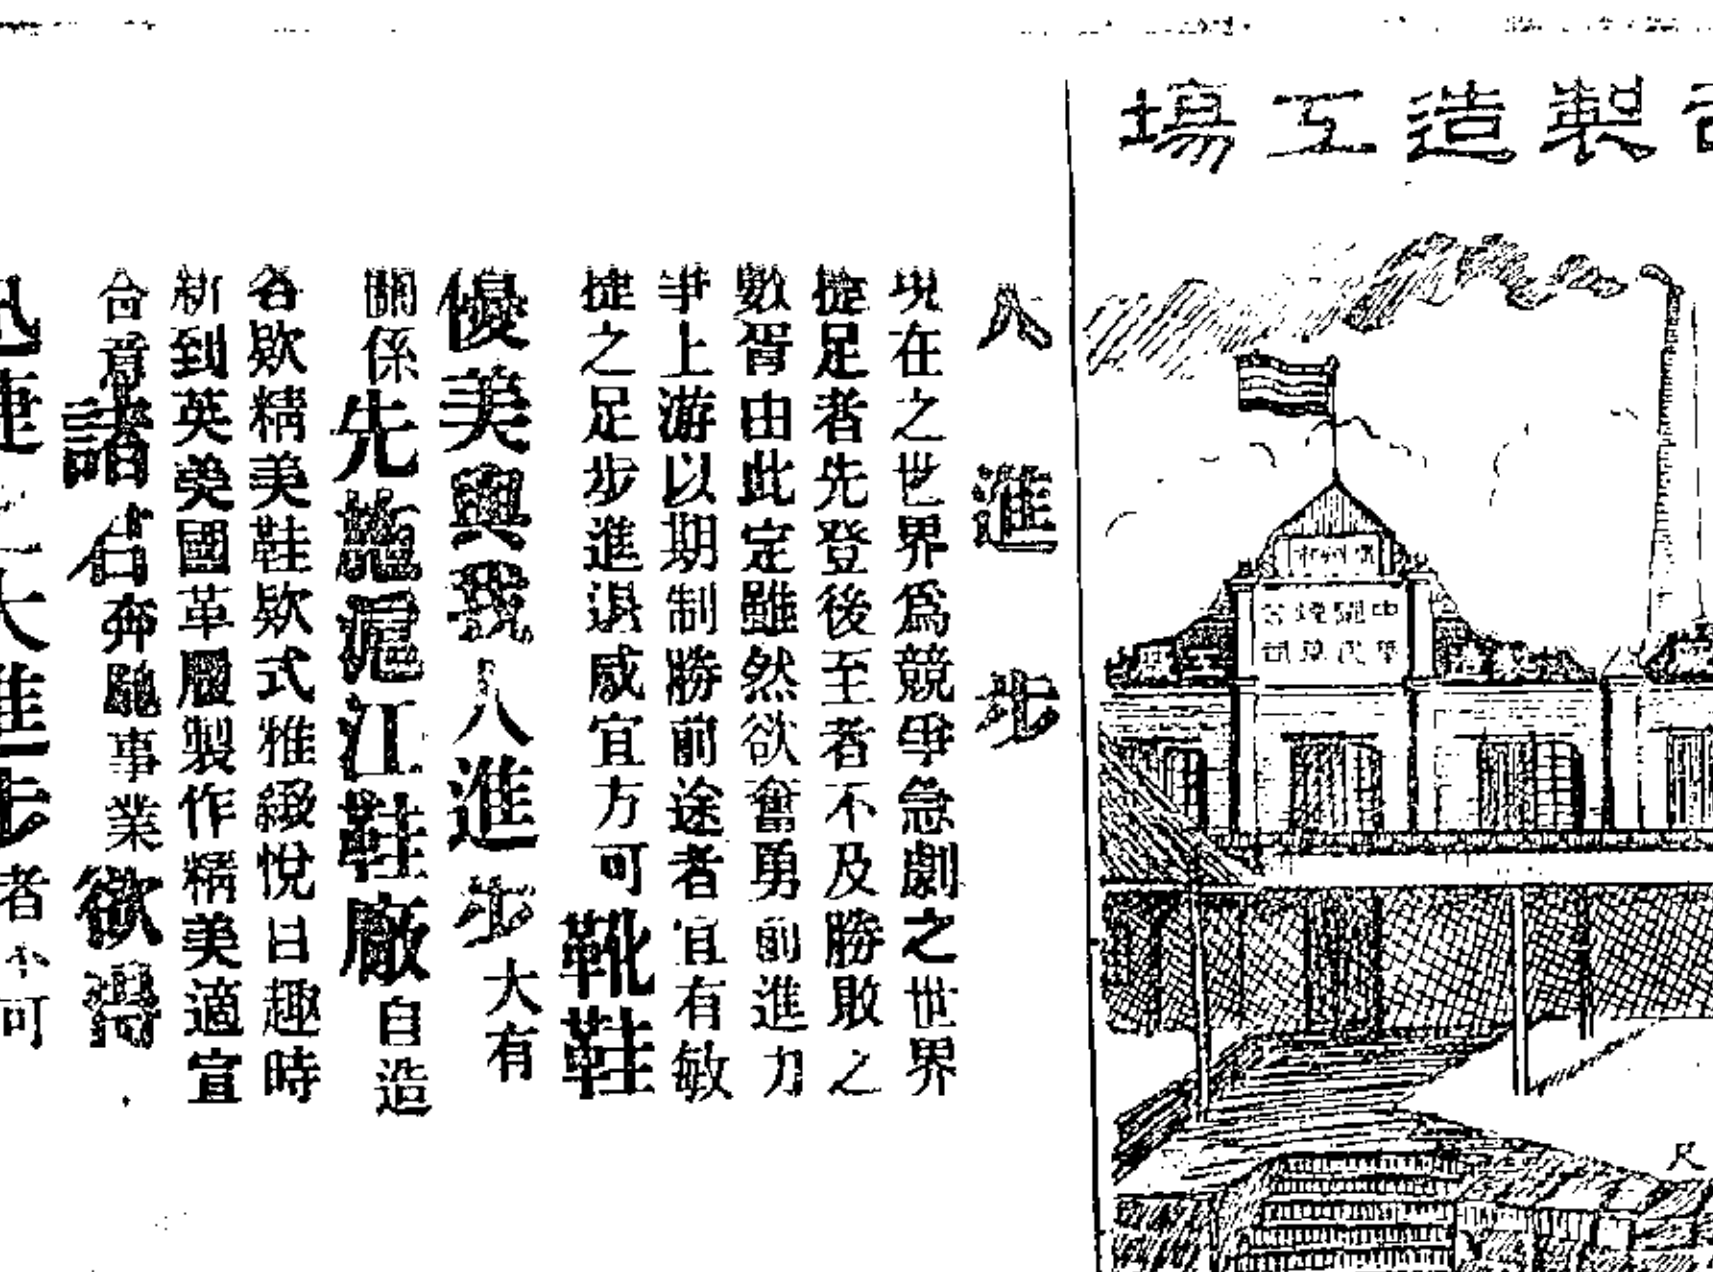 製造工場
人進步
現在之世界爲競爭急劇之世界
捷足者先登後至者不及勝敗之
數胥由此定雖然欲奮勇前進力
爭上游以期制勝前途者宜有敏
捷之足步進退咸宜方可靴鞋
優美與我人進步大有
關係先施滬江鞋廠自造
各欵精美鞋欵式雅緻悅目趣時
新到英美國革履製作精美適宜
合意諸君奔馳事業欲得
迅捷之大進步者不可